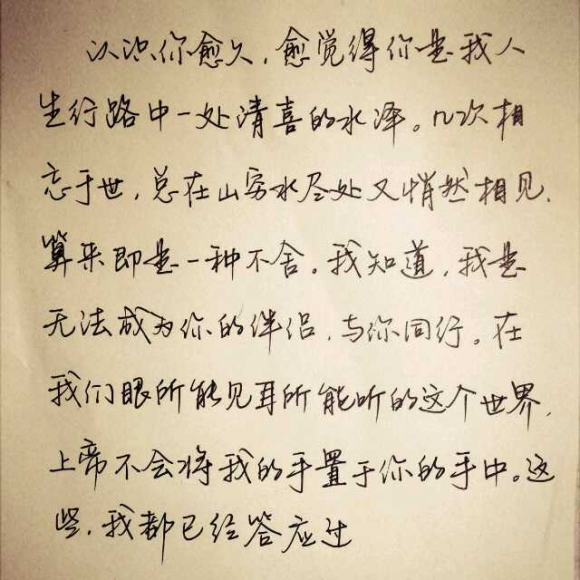 认识你愈久，愈觉得你是我人
生行路中一处清喜的水泽。几次相
忘于世，总在山穷水尽处又悄然相见，
算来即是一种不舍。我知道，我是
无法成为你的伴侣，与你同行。在
我们眼所能见耳所能听的这个世界，
上帝不会将我的手置于你的手中。这
些，我都已经答应过